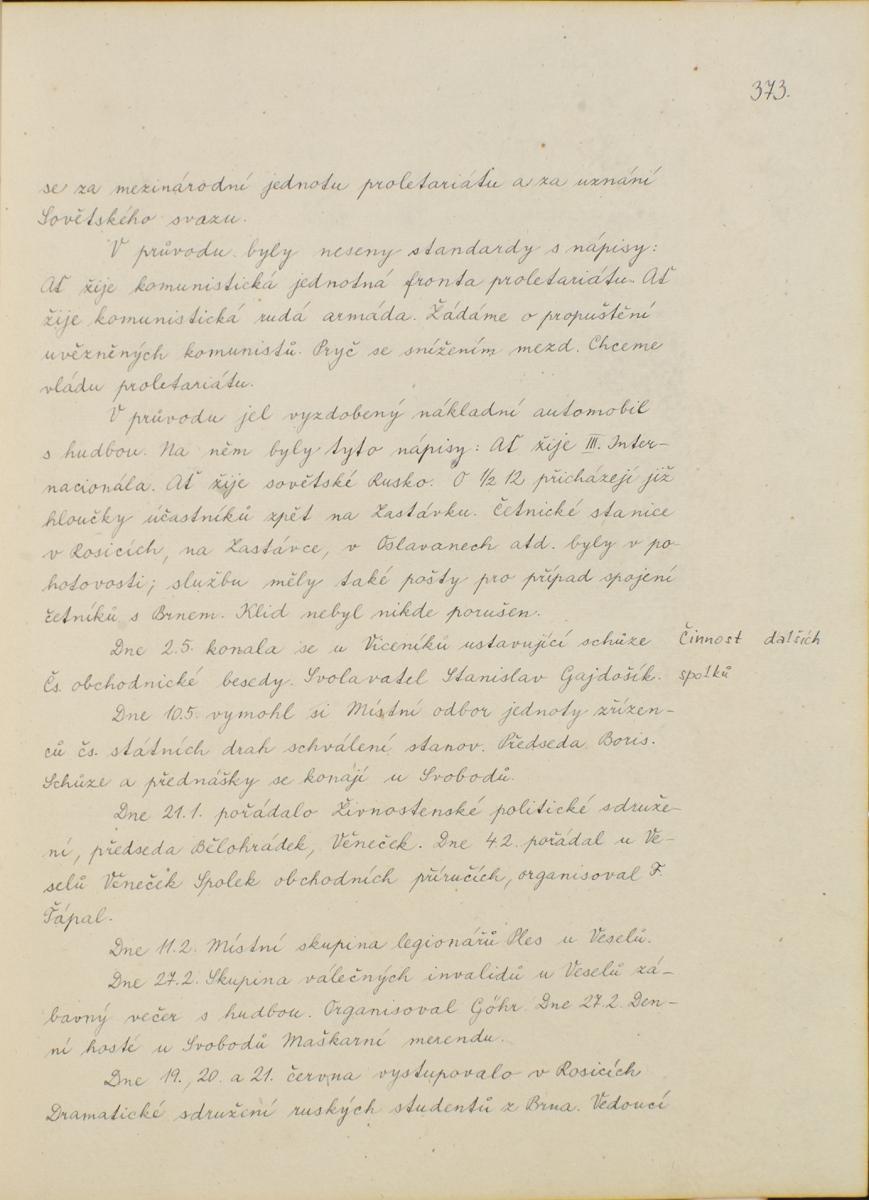 373.
se za mezinárodní jednotu proletariátu a za uznání
Sovětského svazu.
V průvodu byly neseny standardy s nápisy:
Ať žije komunistická jednotná fronta proletariátu. Ať
žije komunistická rudá armáda. Žádáme o propuštění
uvězněných komunistů. Pryč se snížením mezd. Chceme
vládu proletariátu.
V průvodu jel vyzdobený nákladní automobil
s hudbou. Na něm byly tyto nápisy: Ať žije III. Inter-
nacionála. Ať žije sovětské Rusko. O 1/2 12 přicházejí již
hloučky účastníků zpět na Zastávku. Četnické stanice
v Rosicích, na Zastávce, v Oslavanech atd. byly v po-
hotovosti; službu měly také pošty pro případ spojení
četníků s Brnem. Klid nebyl nikde porušen.
Dne 2.5. konala se u Viceníků ustavující schůze
Čs. obchodnické besedy. Svolavatel Stanislav Gajdošík.
Činnost dalších
spolků
Dne 10.5. vymohl si Místní odbor jednoty zřízen-
ců čs. státních drah schválení stanov. Předseda Boris.
Schůze a přednášky se konají u Svobodů.
Dne 21.1. pořádalo Živnostenské politické sdruže-
ní, předseda Bělohrádek, Věneček. Dne 4.2. pořádal u Ve-
selů Věneček Spolek obchodních příručích, organisoval F.
Ťápal.
Dne 11.2. Místní skupina legionářů Ples u Veselů.
Dne 27.2. Skupina válečných invalidů u Veselů zá-
bavný večer s hudbou. Organisoval Göhr. Dne 27.2. Den-
ní hosté u Svobodů Maškarní merendu.
Dne 19., 20. a 21. června vystupovalo v Rosicích
Dramatické sdružení ruských studentů z Brna. Vedoucí